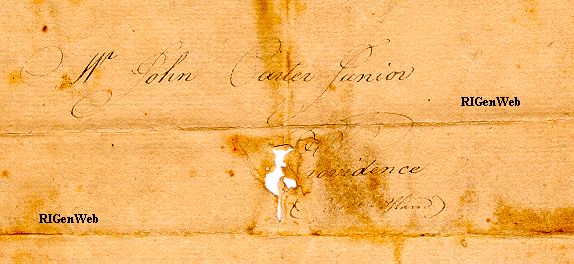 Mr John Carter Junior
RIGenWeb
Providence
RIGenWeb